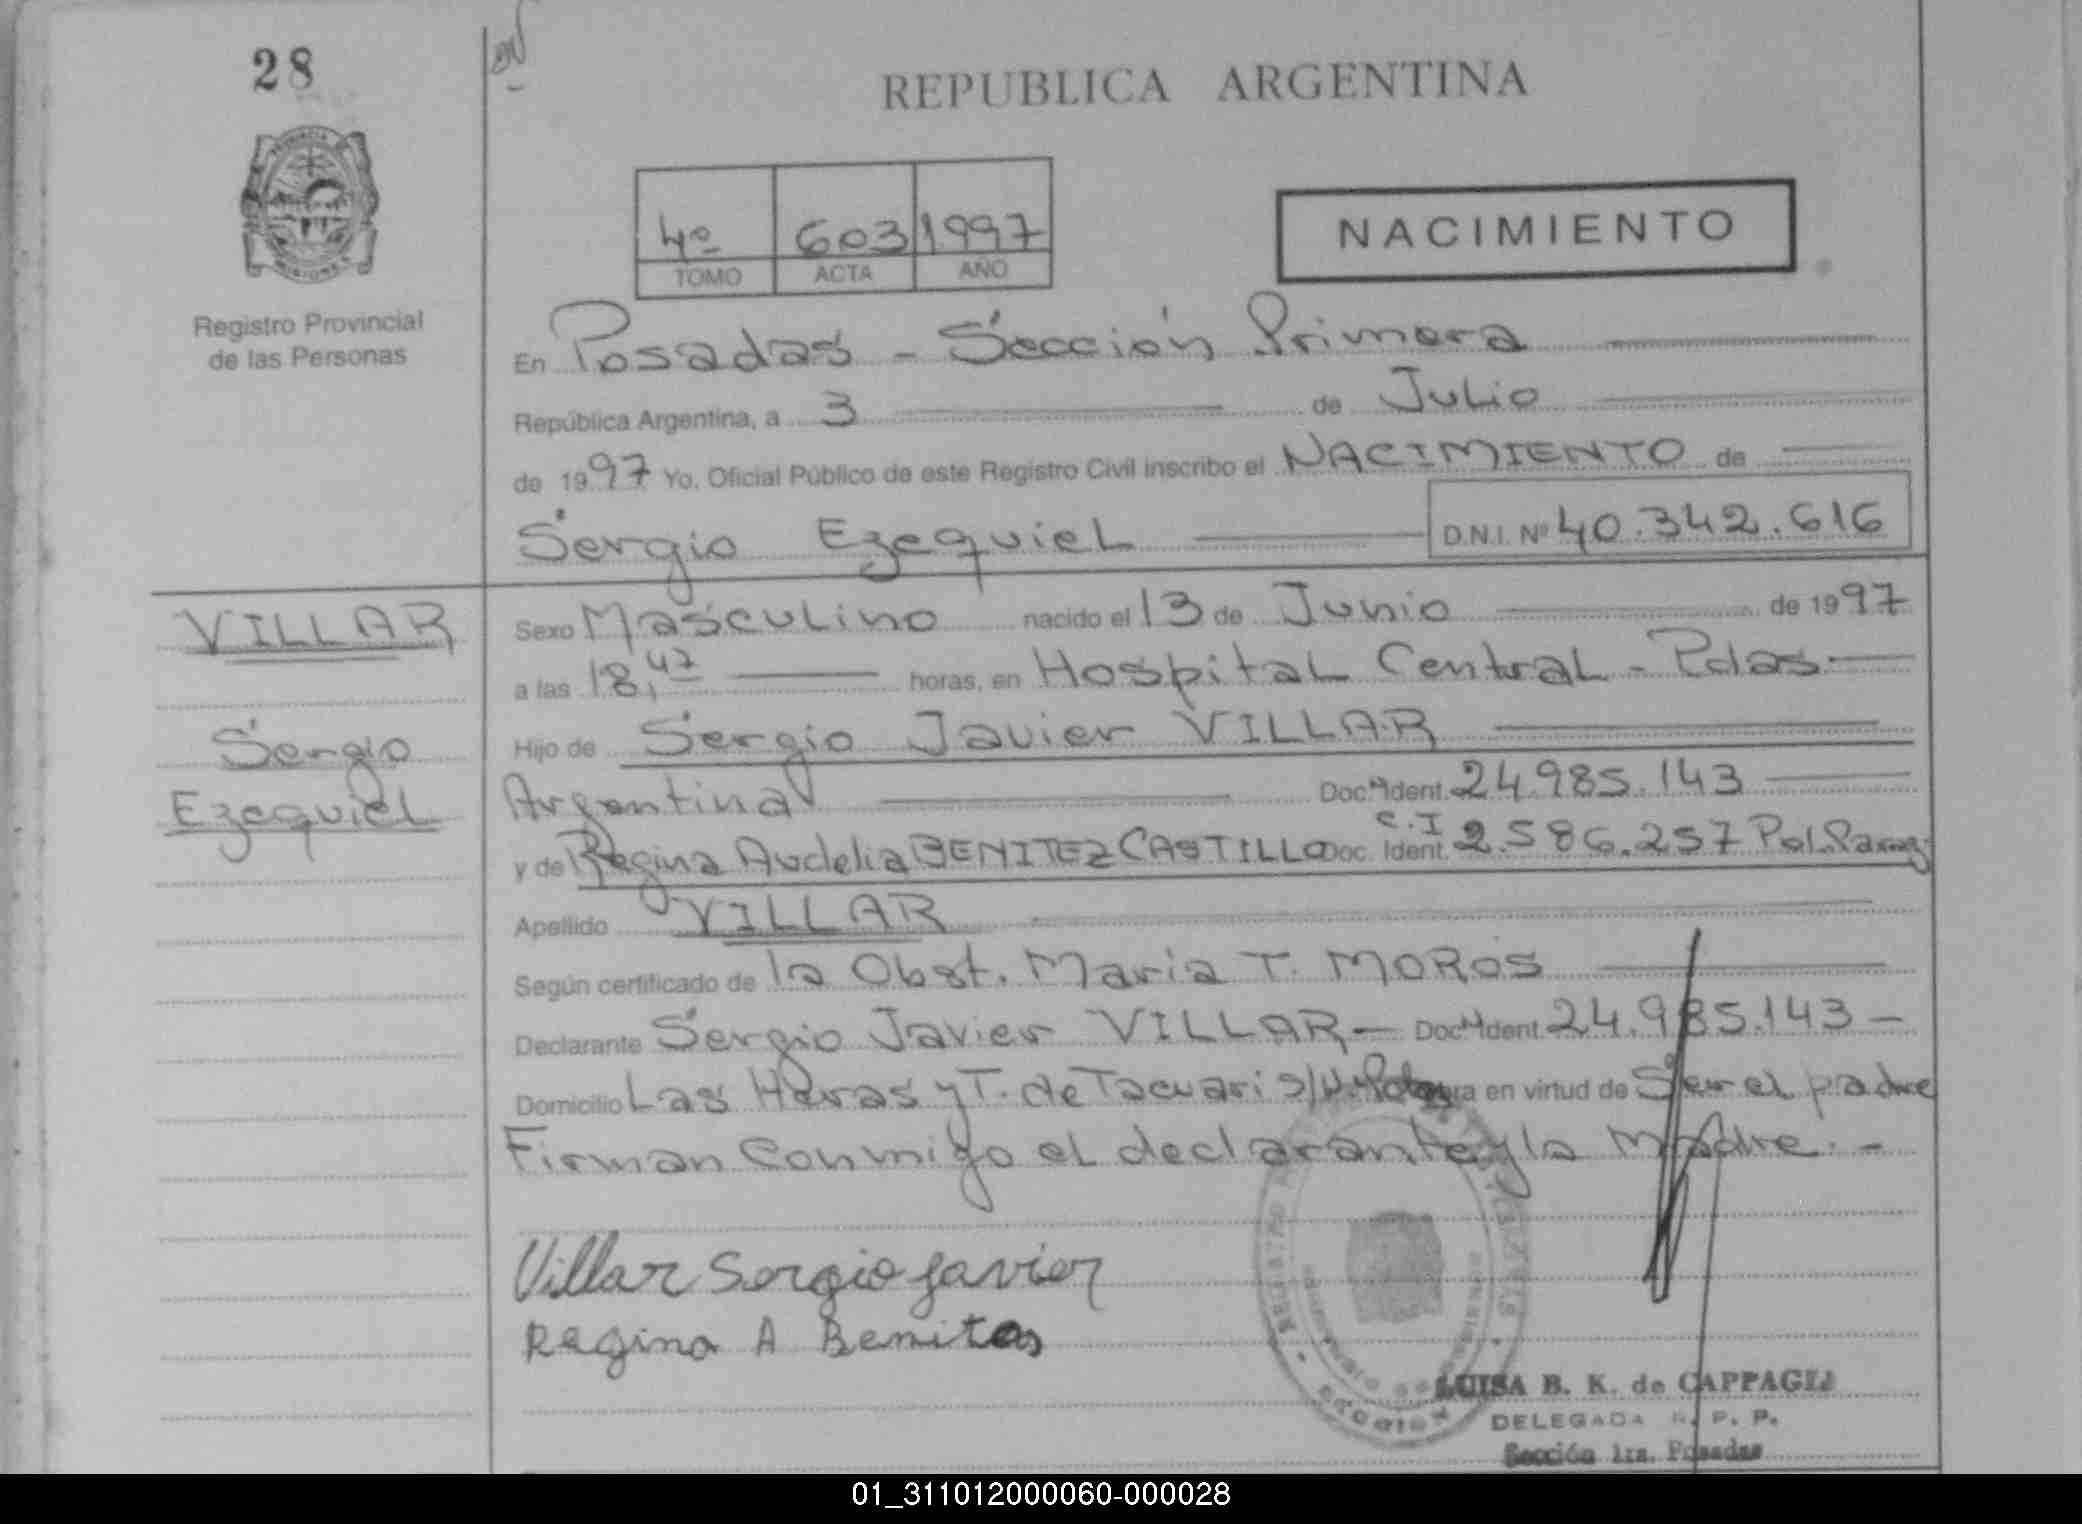 28
REPUBLICA ARGENTINA
4º 603 1997
TOMO ACTA AÑO
NACIMIENTO
MISIONES
Registro Provincial
de las Personas
En Posadas - Sección Primera
República Argentina, a 3 de Julio
de 1997 Yo, Oficial Público de este Registro Civil inscribo el NACIMIENTO de
Sergio Ezequiel D.N.I. Nº 40.342.616
VILLAR
Sergio
Ezequiel
Sexo Masculino nacido el 13 de Junio de 1997
a las 18,47 horas, en Hospital Central - Pdas.
Hijo de Sergio Javier VILLAR
Argentina Doc. Ident. 24.985.143
y de Regina Audelia BENITEZ CASTILLO Doc. Ident. C.I 2.586.257 Pol. Parag.
Apellido VILLAR
Según certificado de la Obst. Maria T. MOROS
Declarante Sergio Javier VILLAR - Doc. Ident. 24.985.143 -
Domicilio Las Heras y T. de Tacuari s/n. en virtud de Ser el padre
Firman conmigo el declarante y la Madre. -
Villar Sergio Javier
Regina A Benites
LUISA B. K. de CAPPAGLI
DELEGADA R. P. P.
Sección 1ra. Posadas
01_311012000060-000028